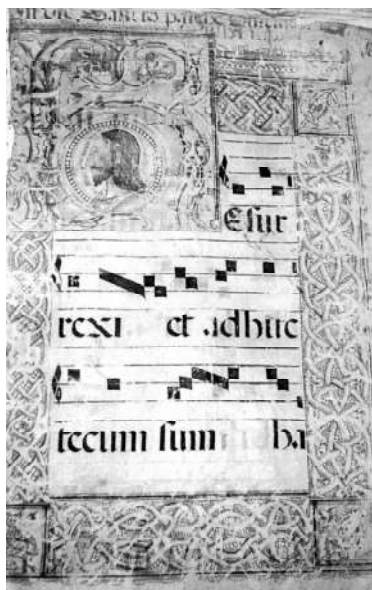 Esur
rexi et adhuc
tecum sum